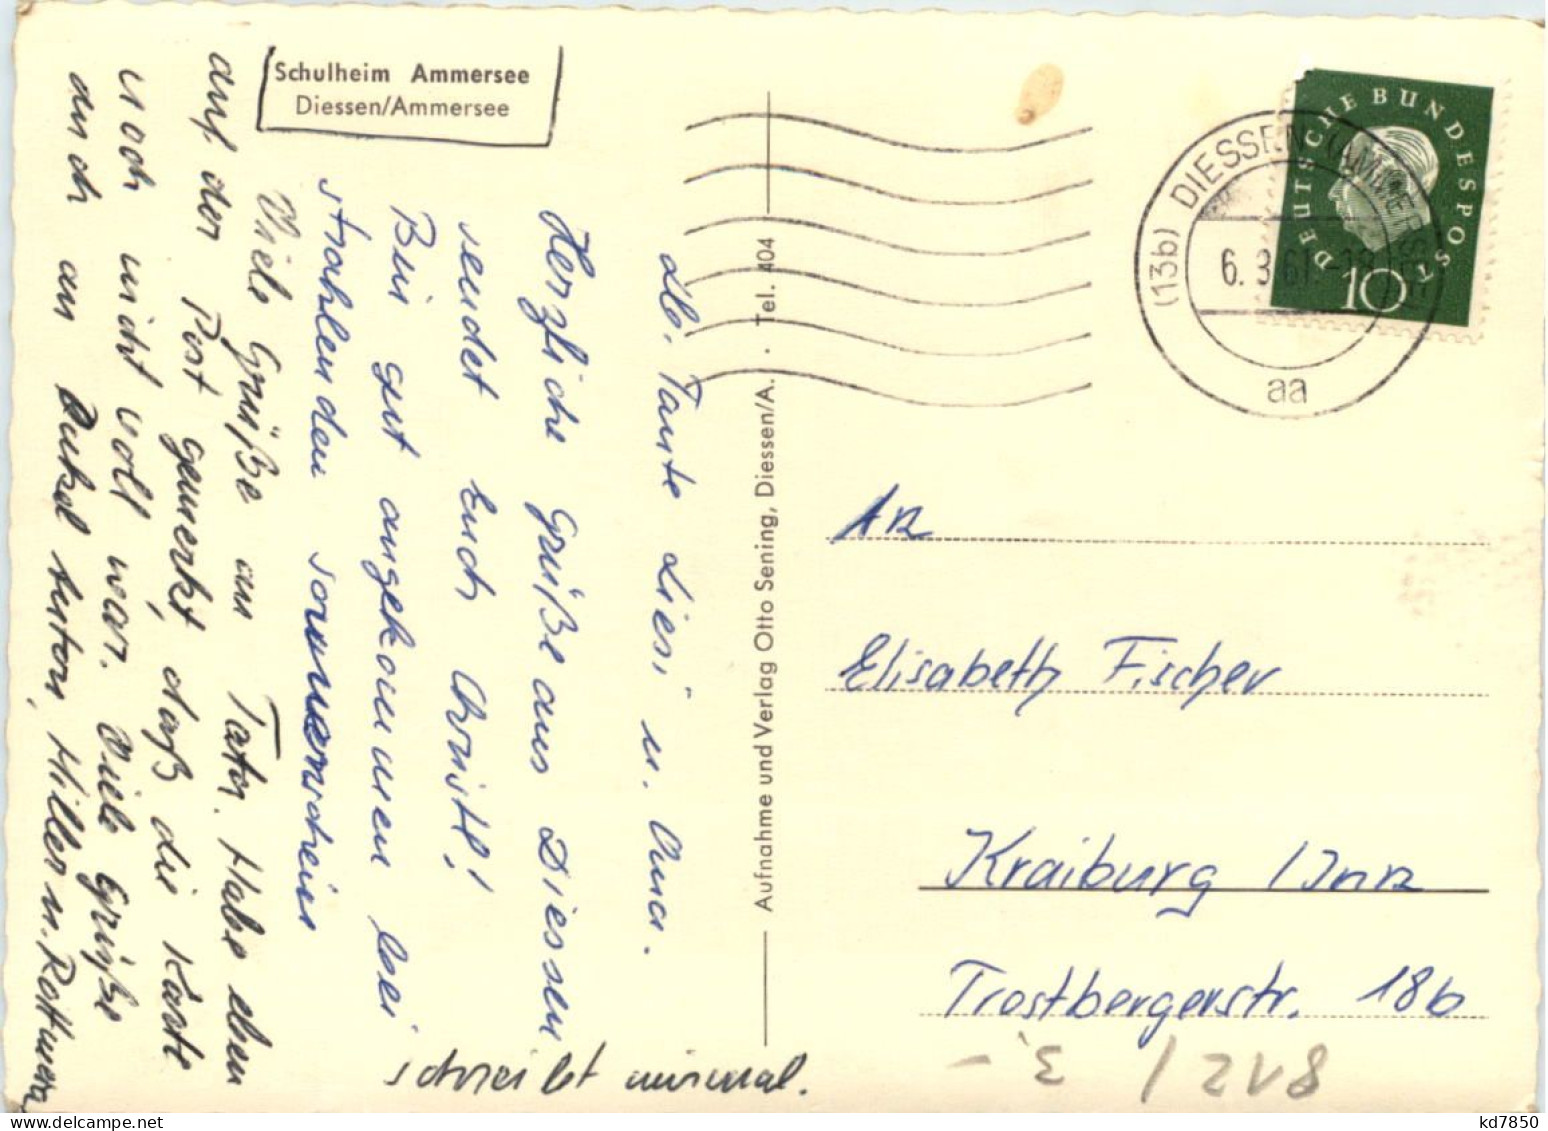 Schulheim Ammersee
Diessen/Ammersee
Lb. Tante Liesi u. Oma.
Herzliche Grüße aus Diessen
sendet Euch Christl!
Bin gut angekommen bei
strahlenden Sonnenschein
Viele Grüße an Tator. Habe eben
auf der Post gemerkt, daß die Karte
noch nicht voll war. Viele Grüße
auch an Onkel
Hiller u.
schreibt mirmal.
Aufnahme und Verlag Otto Sening, Diessen/A. · Tel. 404
DEUTSCHE BUNDESPOST
10
(13b) DIESSEN (AMMERSEE)
6. 3. 61.-18
aa
An
Elisabeth Fischer
Kraiburg / Inn
Trostbergerstr. 18b
812 / 3,-
kd7850